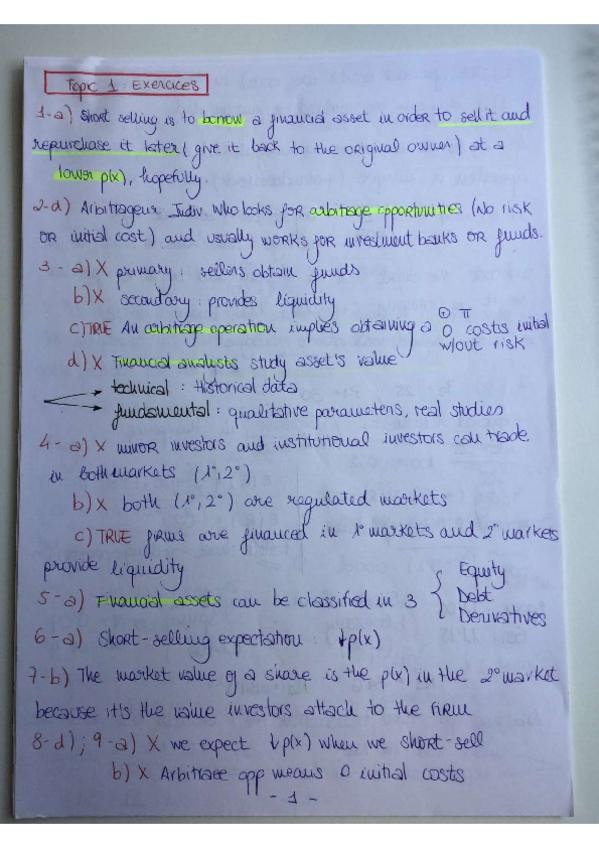 Topic 1 Exercices
1-a) Short selling is to borrow a financial asset in order to sell it and
repurchase it later (give it back to the original owner) at a
lower p(x), hopefully.
2-d) Arbitrageur Indiv. who looks for arbitrage opportunities (No risk
OR initial cost) and usually works for investment banks OR funds.
3-a) X primary: sellers obtain funds
b) X secondary: provides liquidity
c) TRUE An arbitrage operation implies obtaining a ⊕ π 0 costs initial
w/out risk
d) X Financial analysts study asset's value
→ technical: Historical data
→ fundamental: qualitative parameters, real studies
4-a) X minor investors and institutional investors can trade
in both markets (1º, 2º)
b) X both (1º, 2º) are regulated markets
c) TRUE firms are financed in 1º markets and 2º markets
provide liquidity
5-a) Financial assets can be classified in 3 { Equity
Debt
Derivatives
6-a) Short-selling expectation: ↓p(x)
7-b) The market value of a share is the p(x) in the 2º market
because it's the value investors attach to the firm
8-d); 9-a) X we expect ↓p(x) when we short-sell
b) X Arbitrage opp means 0 initial costs
- 1 -